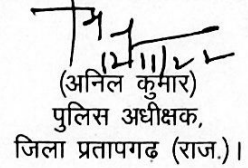 12/11/22
(अनिल कुमार)
पुलिस अधीक्षक,
जिला प्रतापगढ़ (राज.)।